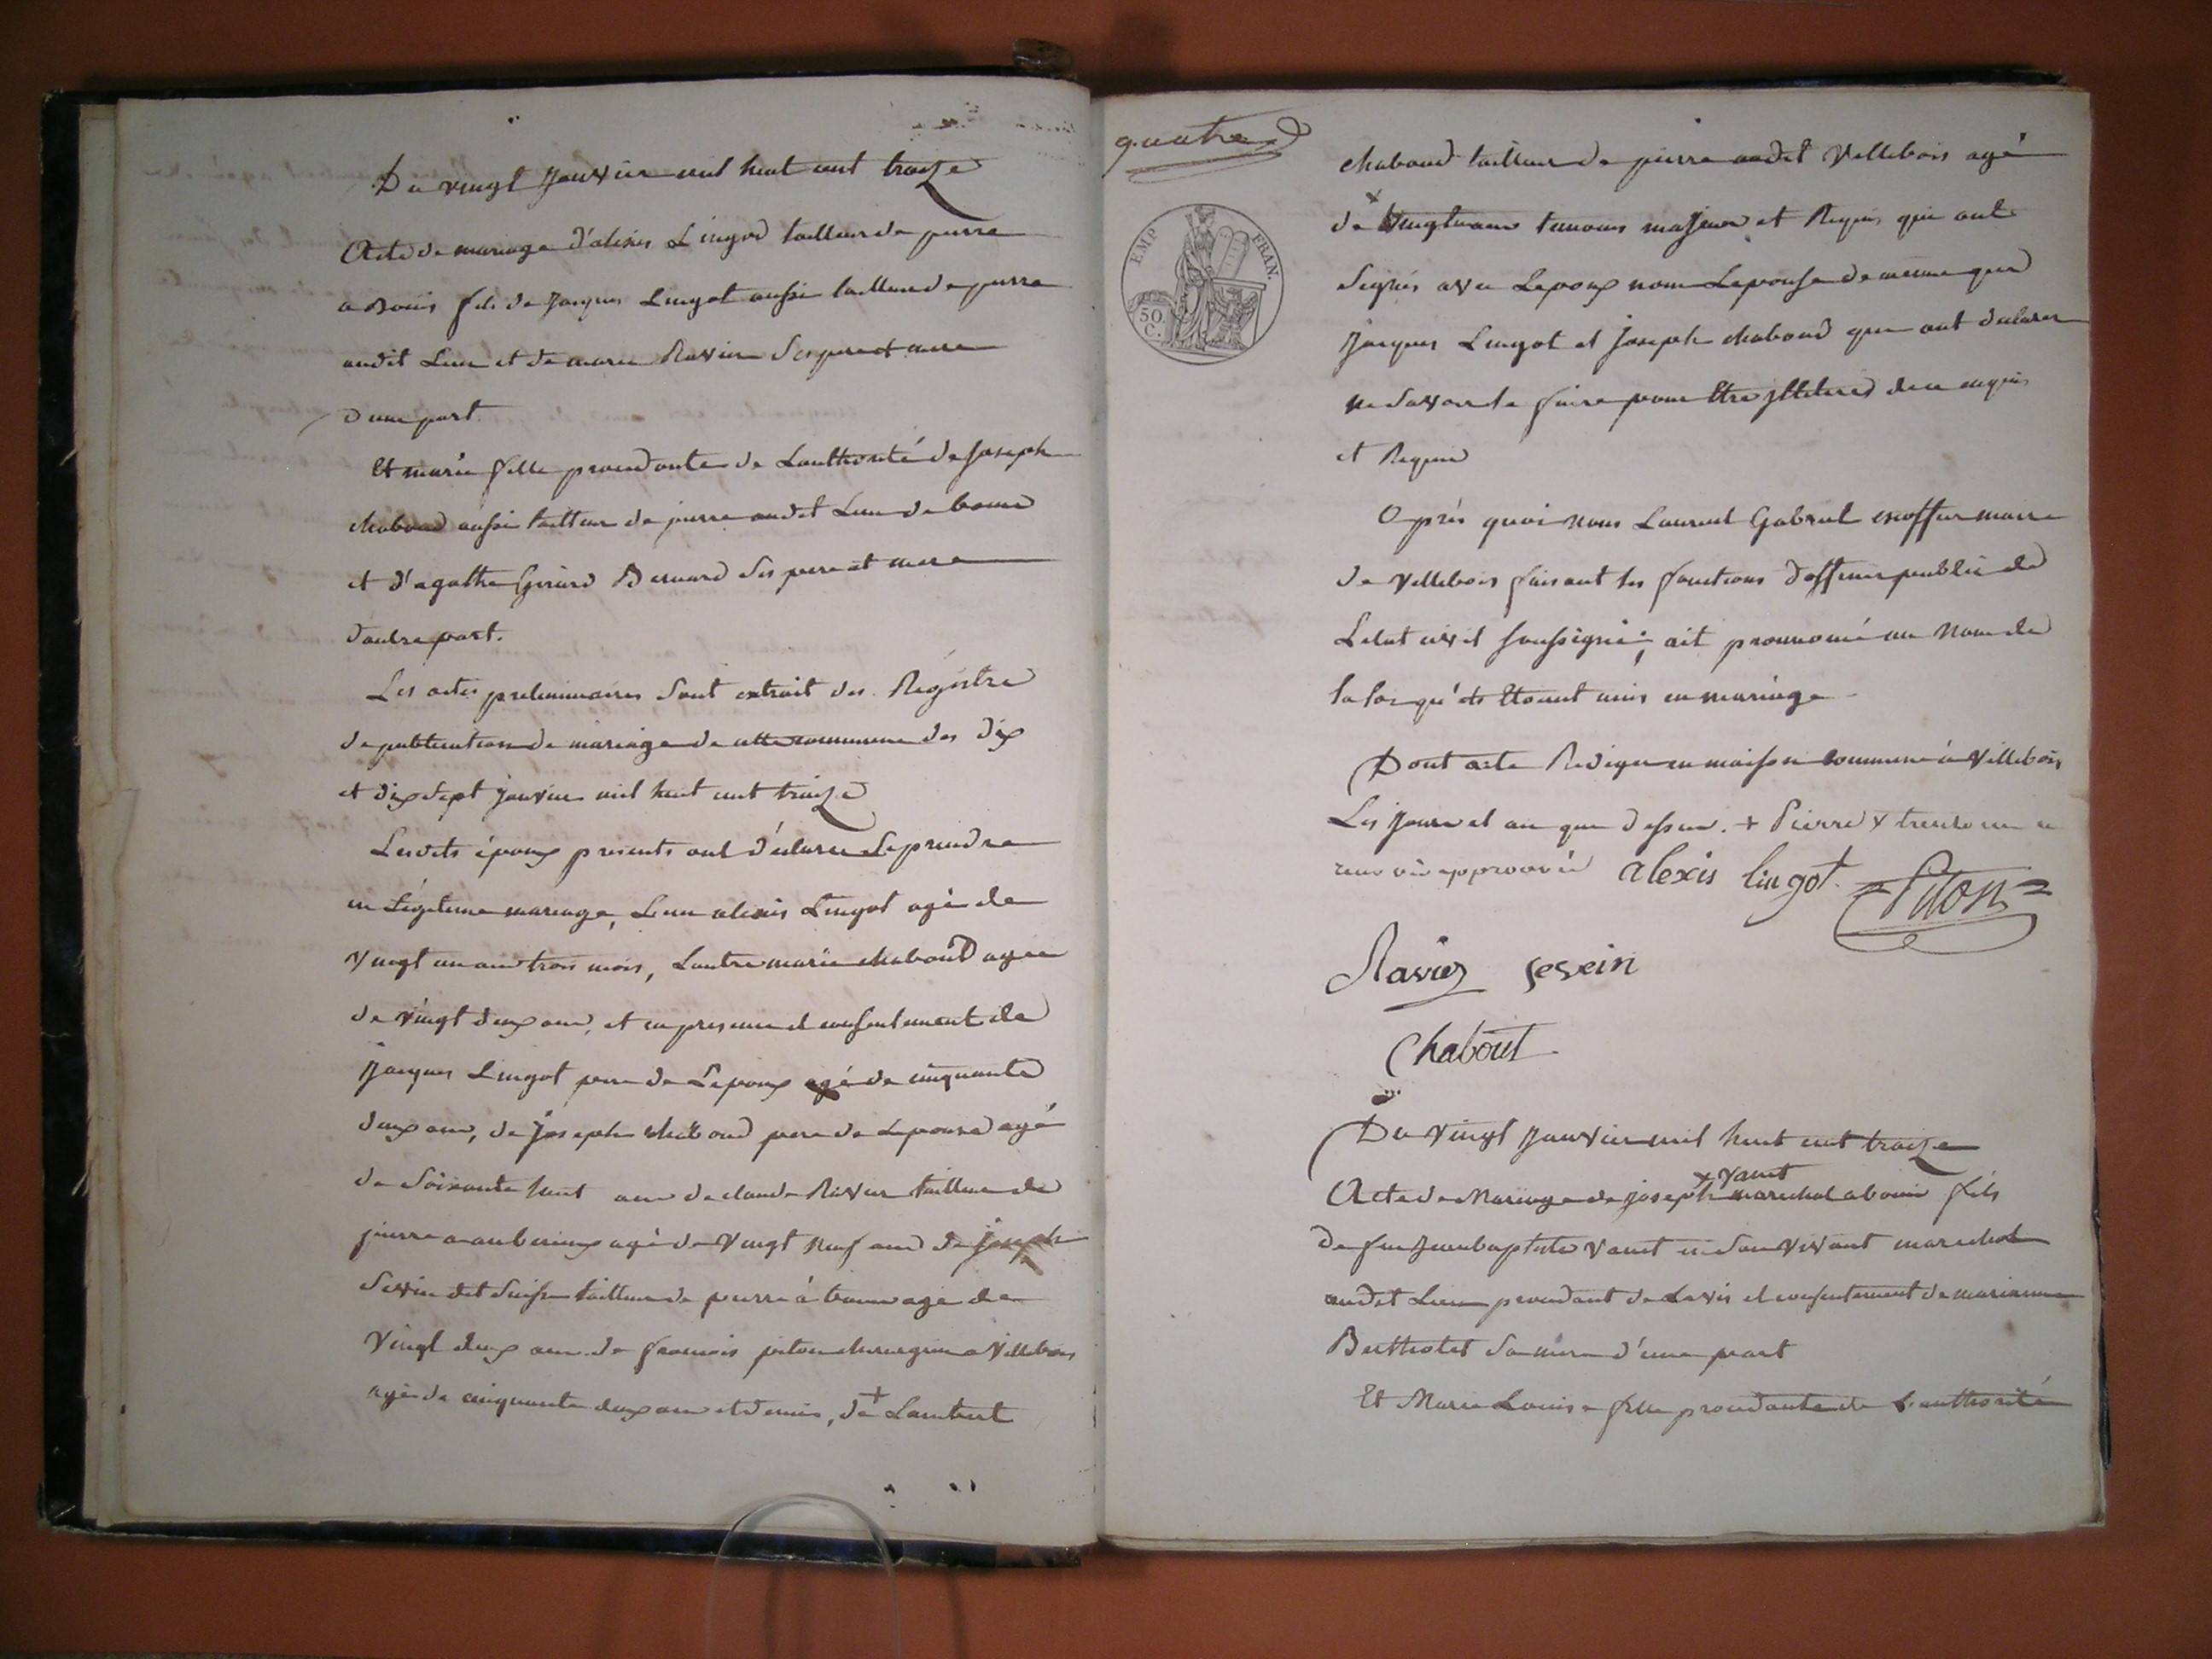 Du vingt janvier mil huit cent treize
Acte de mariage d'alexis Lingot tailleur de pierre
a Bouis fils de Jacques Lingot aussi tailleur de pierre
audit Lieu et de marie Ravier Ses pere et mere
d'une part.
Et marie fille procedante de Lauthorité de Joseph
chaboud aussi tailleur de pierre audit Lieu de bouis
et d'agathe Girard Bernard Ses pere et mere
d'autre part.
Les actes preliminaires Sont extrait des Régistre
de publication de mariage de cette commune des dix
et dix Sept janvier mil huit cent treize
Lesdits époux presents ont déclarer Se prendre
en Légitime mariage, Lun alexis Lingot agé de
vingt un ans trois mois, Lautre marie chaboud agée
de vingt deux ans, et en presence et consentement de
Jacques Lingot pere de Lepoux agé de cinquante
deux ans, de joseph chaboud pere de Lepouse agé
de Soixante huit ans de claude Ravier tailleur de
pierre a agé de vingt neuf ans de joseph
Sevin dit tailleur de pierre à bouis agé de
vingt deux ans de francois piton chirurgien a Villebois
agé de cinquante deux ans et demis, de + Lambert
quatre
EMP FRAN.
50. C.
chaboud tailleur de pierre audit Villebois agé
de x temoins majeur et Requis qui ont
Signés avec Lepoux non Lepouse de meme que
Jacques Lingot et Joseph chaboud qui ont declarer
ne Savoir le faire pour Etre jlleteres de ce enquis
et Requis
Après quoi nous Laurent Gabriel maire
de Villebois faisant les fonctions d'officier public de
Letat civil Soussigné; ait prononcé au Nom de
la loi qu'ils Etoient unis en mariage
Dont acte Rediger en maison commune à Villebois
Les jour et an que dessus. + Pierre x trente un
renvoi approuvé alexis lingot. Piton
Ravier sevein
Chabout
Du vingt janvier mil huit cent treize
x vanet
Acte de Mariage de joseph marechal a bouis fils
de feu jean baptiste vanet en Son vivant marechal
audit Lieu procedant de Lavis et consentement de marianne
Bertholet Sa mere d'une part
Et Marie Louise fille procedante de L'authorité